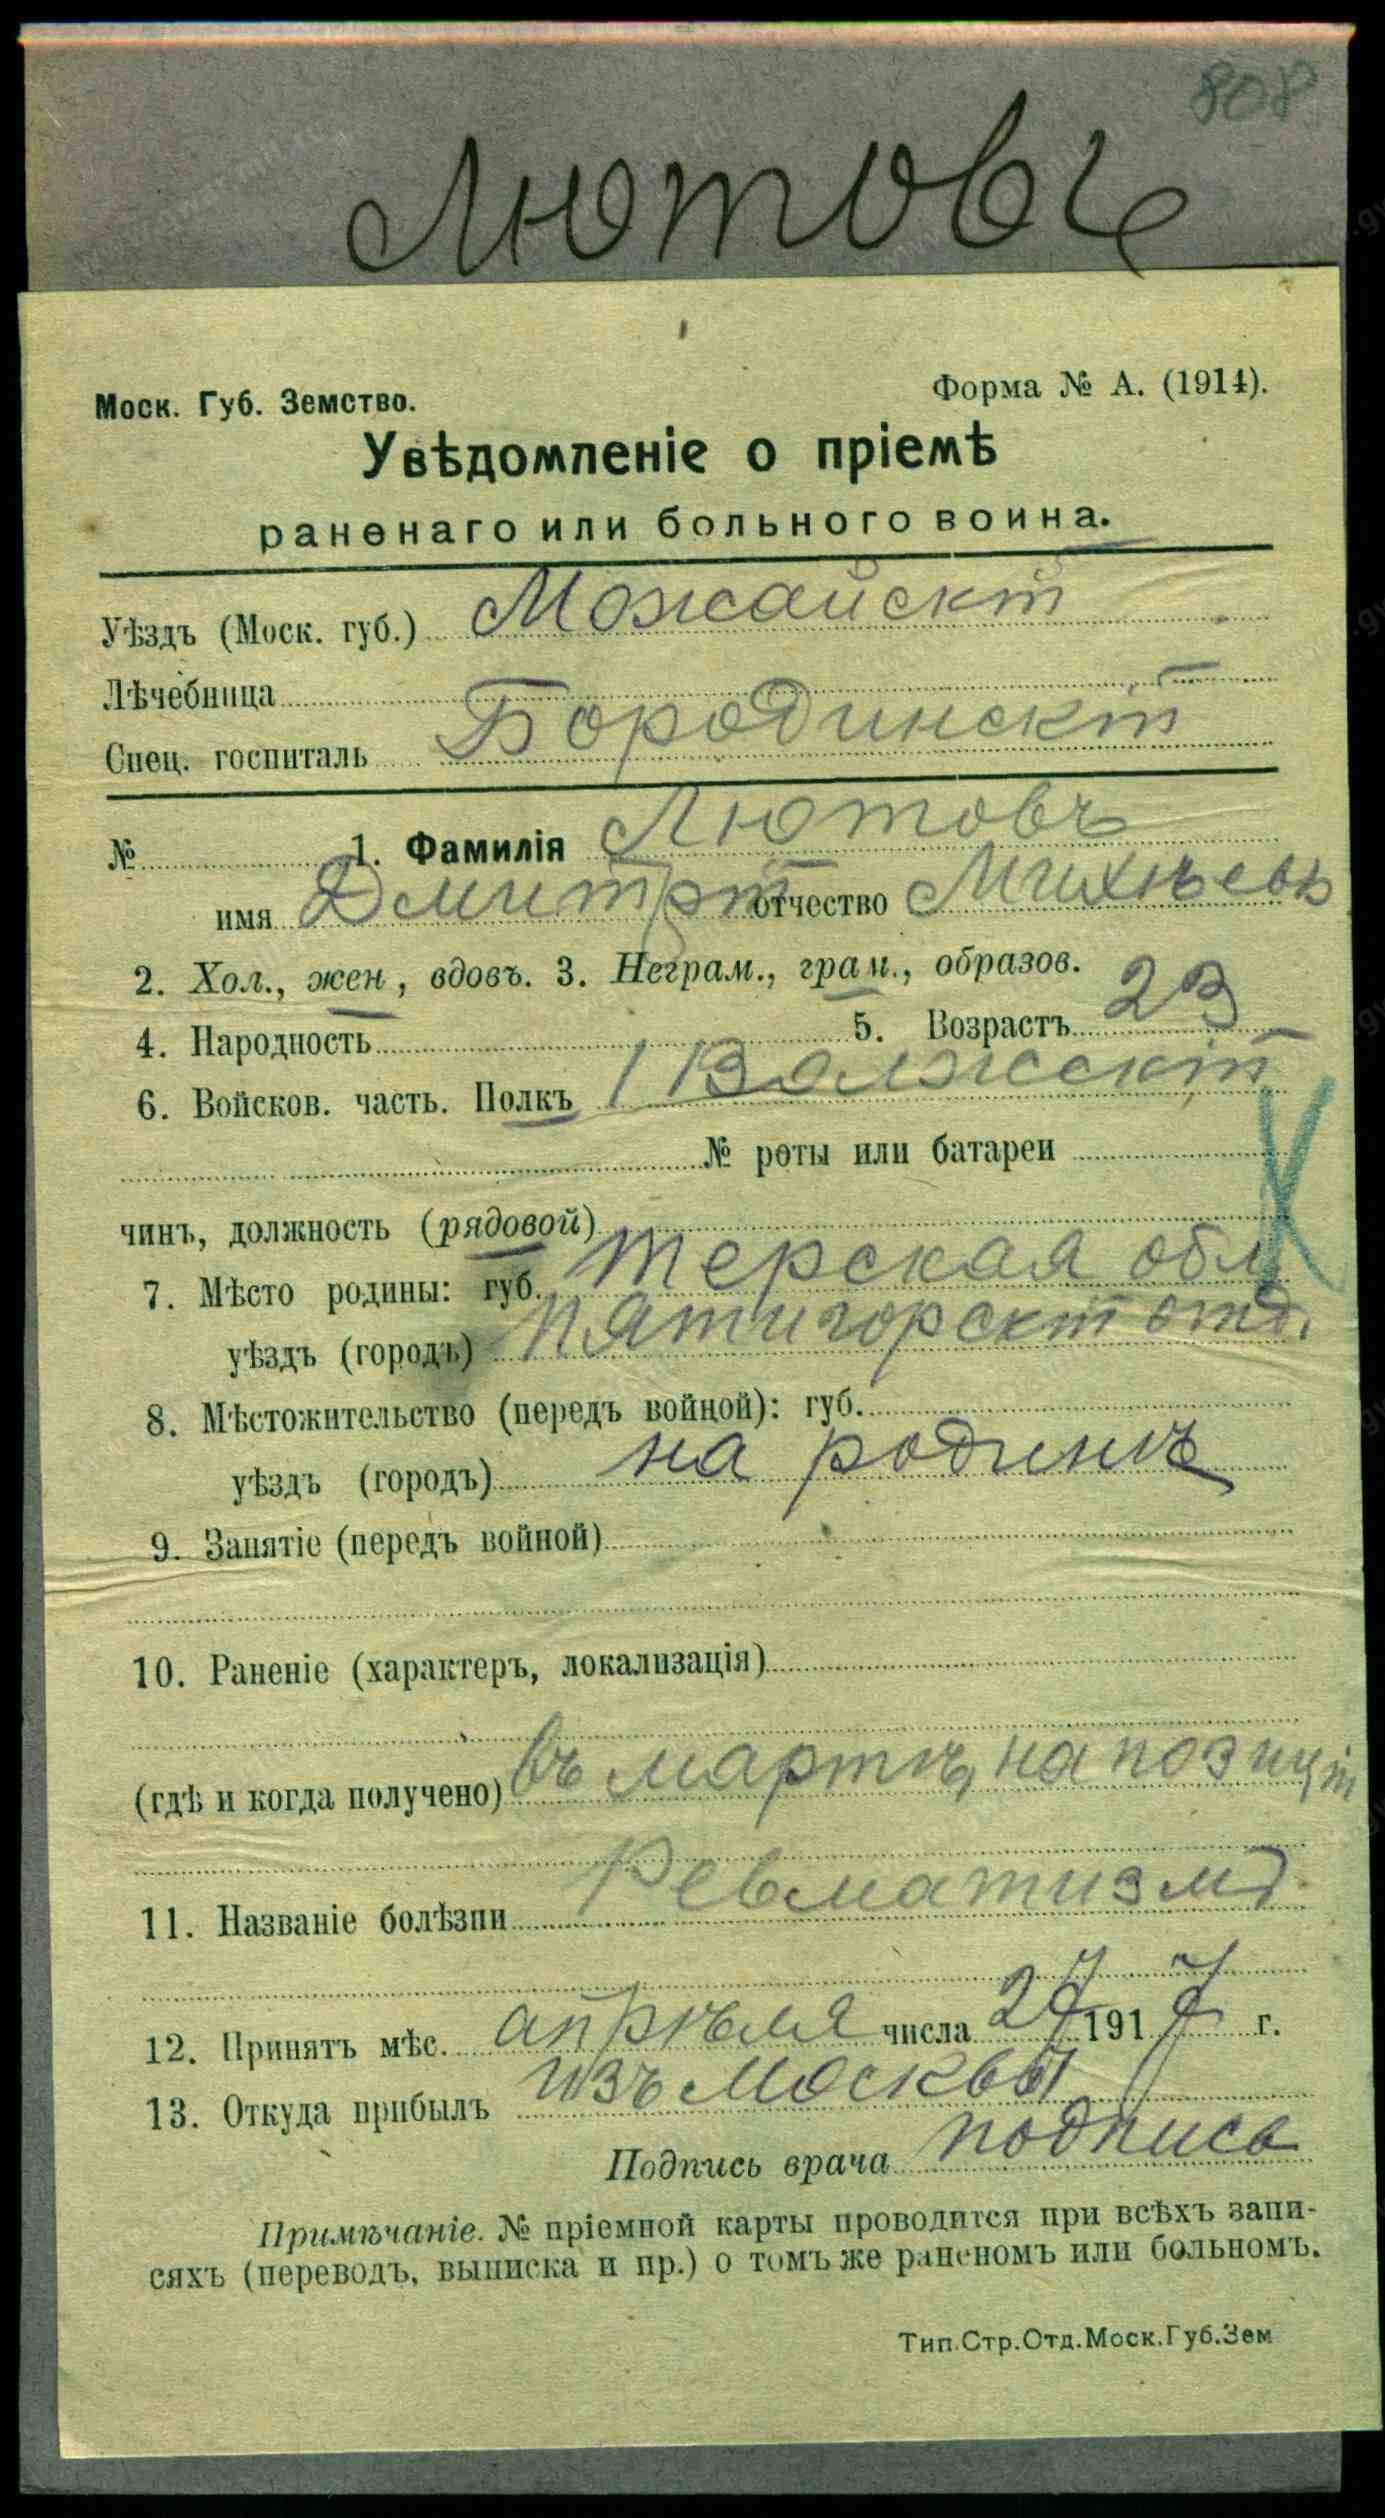 808
Лютовъ
Моск. Губ. Земство.
Форма № А. (1914).
Увѣдомленіе о пріемѣ
раненаго или больного воина.
Уѣздъ (Моск. губ.) Можайскій
Лѣчебница
Спец. госпиталь Бородинскій
№ 1. Фамилія Лютовъ
имя Дмитрій отчество Михѣевъ
2. Хол., жен, вдовъ. 3. Неграм., грам., образов.
4. Народность 5. Возрастъ 23
6. Войсков. часть. Полкъ 1 Волжскій
№ роты или батареи
чинъ, должность (рядовой)
7. Мѣсто родины: губ. Терская обл
уѣздъ (городъ) Пятигорскій отд.
8. Мѣстожительство (передъ войной): губ.
уѣздъ (городъ) на родинѣ
9. Занятіе (передъ войной)
10. Раненіе (характеръ, локализація)
(гдѣ и когда получено) въ мартѣ, на позиціи
11. Названіе болѣзни Ревматизмъ
12. Принятъ мѣс. апрѣля числа 27 1917 г.
13. Откуда прибылъ изъ Москвы
Подпись врача подпись
Примѣчаніе. № пріемной карты проводится при всѣхъ запи-
сяхъ (переводъ, выписка и пр.) о томъ же раненомъ или больномъ.
Тип.Стр.Отд.Моск.Губ.Зем